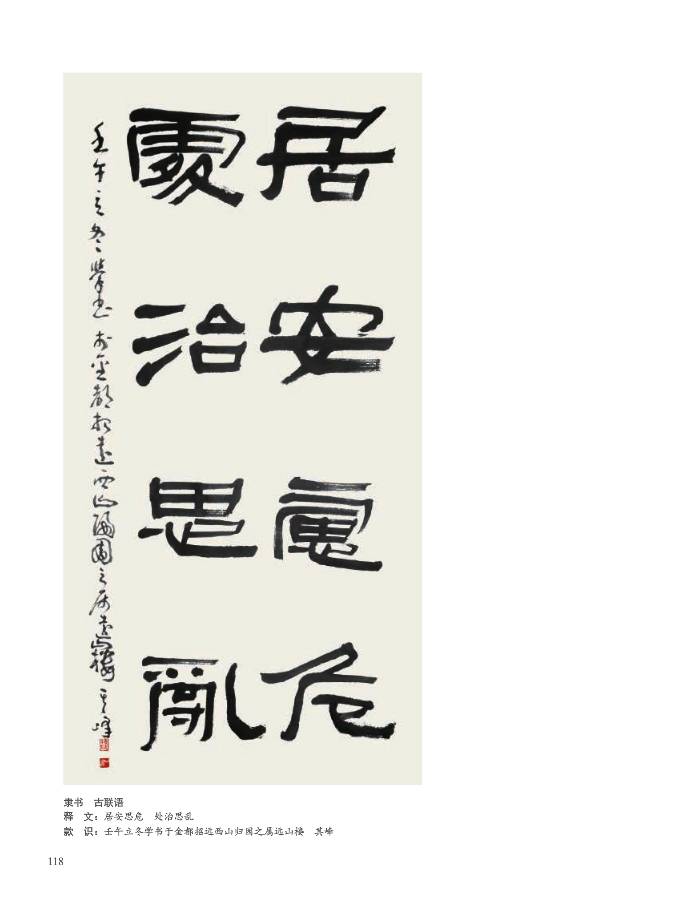 居安慮危
處治思亂
壬午立冬學書於金都招遠西山歸園之属遠山樓 其峰
隶书 古联语
释 文：居安思危 处治思乱
款 识：壬午立冬学书于金都招远西山归园之属远山楼 其峰
118